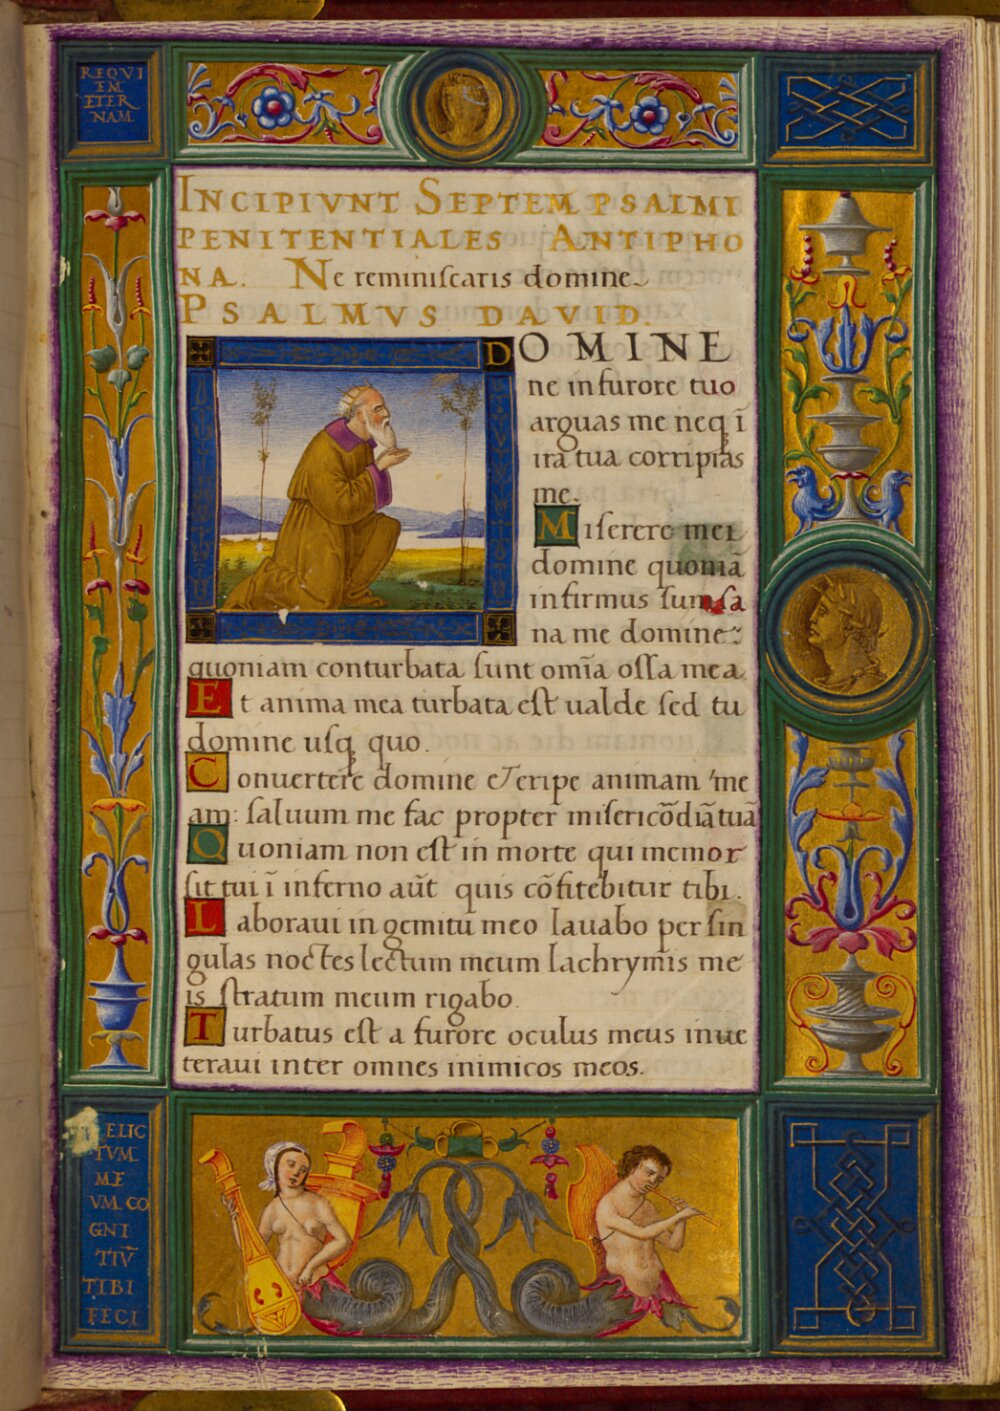 REQVI
EM
ETER
NAM
INCIPIVNT SEPTEM PSALMI
PENITENTIALES ANTIPHO
NA. Ne reminiscaris domine
PSALMVS DAVID.
DOMINE
ne in furore tuo
arguas me neq̨ ī
ira tua corripias
me.
Miserere mei
domine quoniā
infirmus sum sa
na me domine
quoniam conturbata sunt om̄ia ossa mea
Et anima mea turbata est ualde sed tu
domine usq̨ quo.
Conuertere domine & eripe animam me
am: saluum me fac propter misericōdiā tuā
Quoniam non est in morte qui memor
sit tui ī inferno aūt quis cōfitebitur tibi.
Laboraui in gemitu meo lauabo per sin
gulas noctes lectum meum lachrymis me
is stratum meum rigabo.
Turbatus est a furore oculus meus inue
teraui inter omnes inimicos meos.
ELIC
TVM
ME
VM CO
GNI
TIV̄
TIBI
FECI